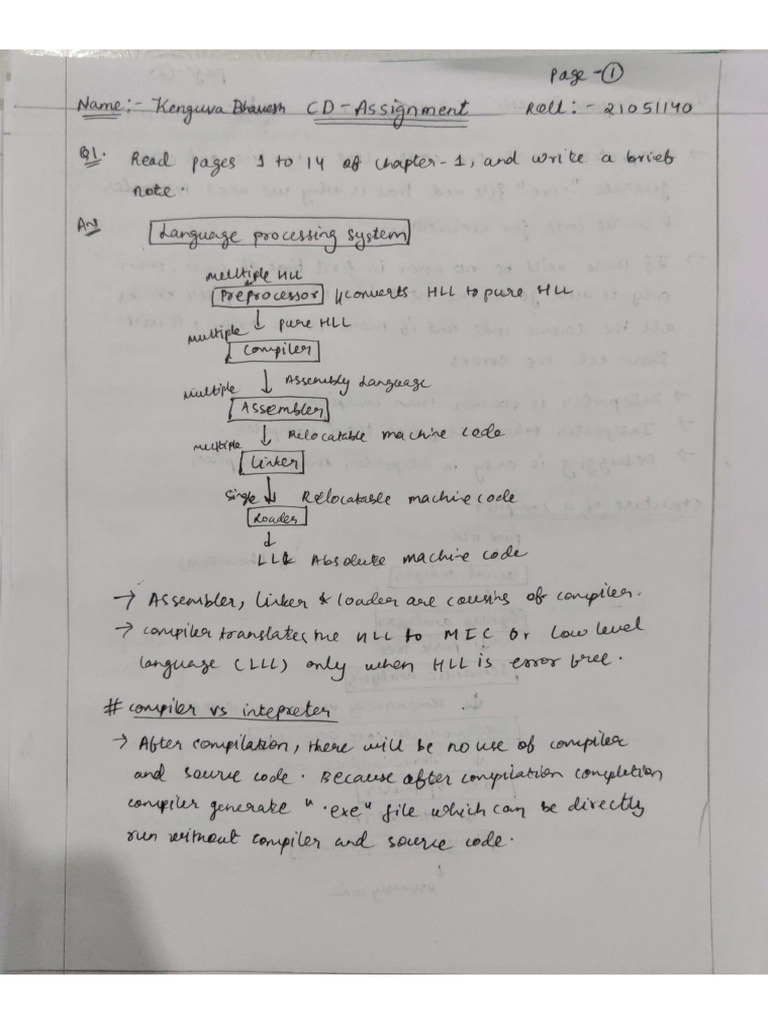 Page - 1
Name:- Kenguva Bhavesh CD-Assignment Roll:- 21051140
Q1. Read pages 1 to 14 of chapter-1, and write a brief
note.
Ans Language processing system
multiple HLL
Preprocessor //converts HLL to pure HLL
multiple ↓ pure HLL
Compiler
multiple ↓ Assembly Language
Assembler
multiple ↓ Relocatable machine code
Linker
Single ↓ Relocatable machine code
Loader
↓
Absolute machine code
→ Assembler, linker & loader are cousins of compiler.
→ compiler translates the HLL to MLC or low level
language (LLL) only when HLL is error free.
# compiler vs intepreter
→ After compilation, there will be no use of compiler
and source code. Because after compilation completion
compiler generate ".exe" file which can be directly
run without compiler and source code.